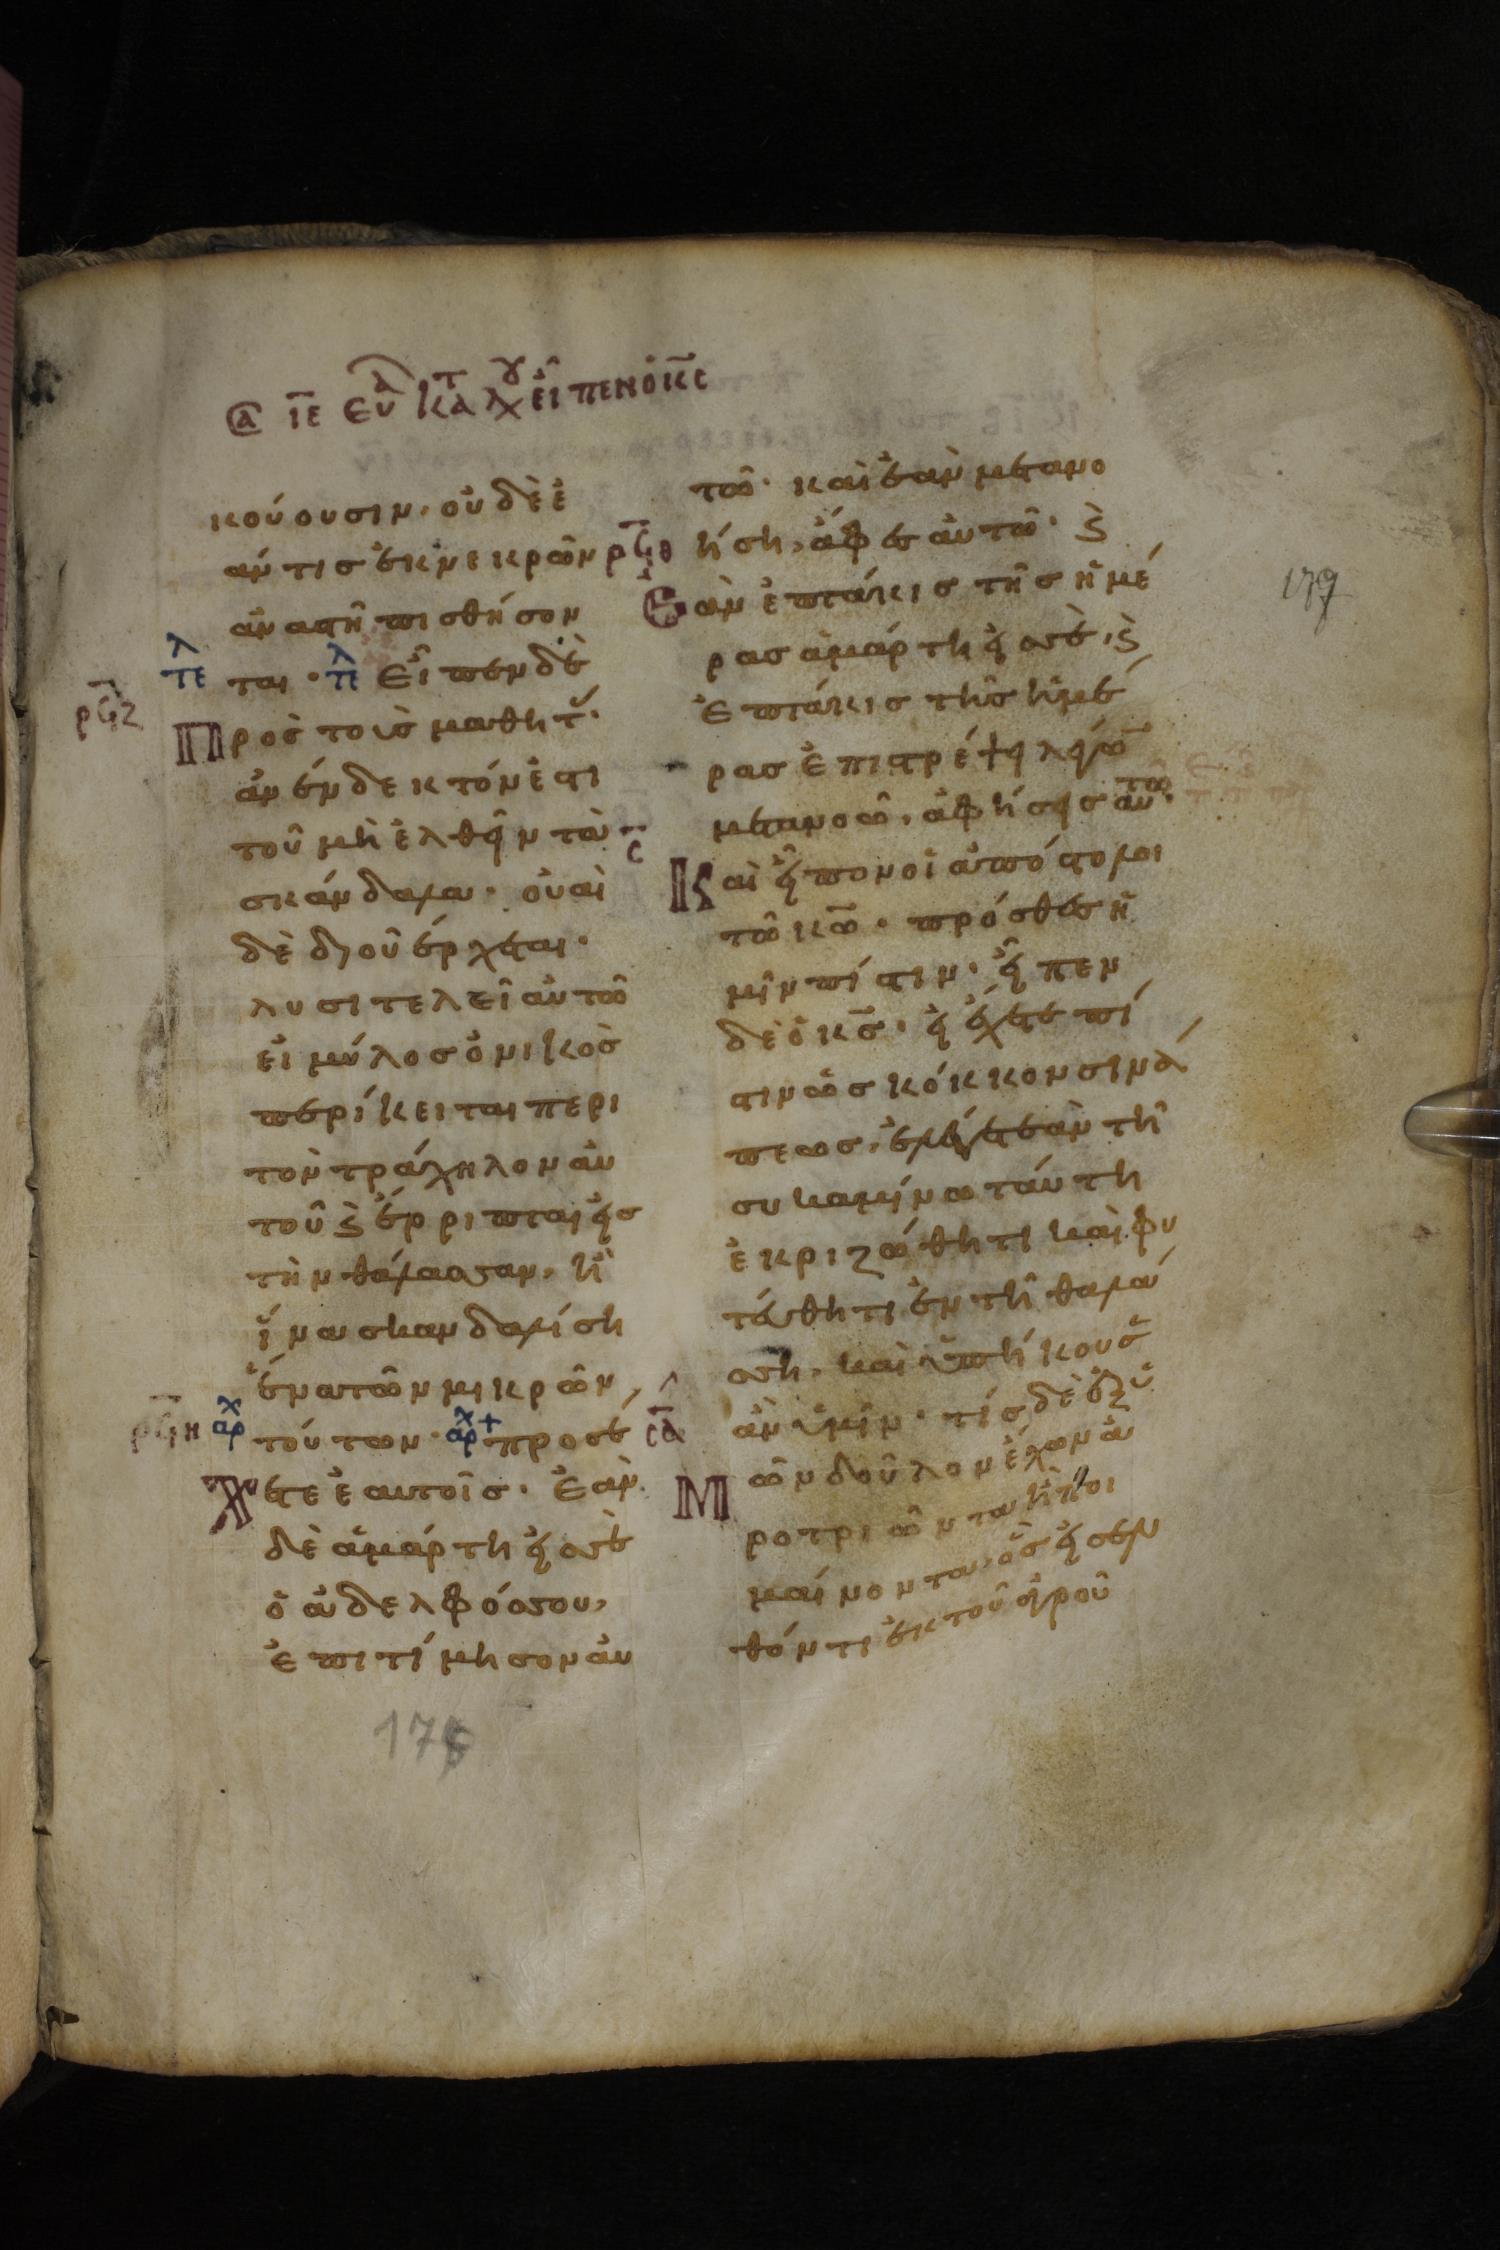 κούουσιν, οὐδὲ ἐ
άν τισ ἐκ νεκρῶν
ἀναστῆ πεισθήσον
ται · Εἶπεν δὲ
Πρὸσ τοὺσ μαθητ
ἀνένδεκτόν ἐστι
τοῦ μὴ ἐλθεῖν τὰ
σκάνδαλα · οὐαὶ
δὲ δι οὗ ἔρχεται ·
λυσιτελεῖ αὐτῶ
εἰ μύλοσ ὀνικὸσ
περίκειται περι
τὸν τράχηλον αὐ
τοῦ ϗ ἔρριπται εἰσ
τὴν θάλασσαν, ἢ
ἵνα σκανδαλίση
ἕνα τῶν μικρῶν
τούτων · προσέ
Χετε ἑαυτοῖσ · Ἐὰν
δὲ ἁμάρτη εἰσ σὲ
ὁ ἀδελφόσ σου,
ἐπιτίμησον αὐ
τῶ · καὶ ἐὰν μετανο
ήση, ἄφεσ αὐτῶ · ϗ
Ἐὰν ἑπτάκισ τῆσ ἡμέ
ρασ ἁμάρτη εἰσ σὲ, ϗ
ἑπτάκισ τῆσ ἡμέ
ρασ ἐπιστρέψη λέγων
μετανοῶ, ἀφήσεισ αὐτῶ ·
Καὶ εἶπον οἱ ἀπόστολοι
τῶ κω · πρόσθεσ ἡ
μῖν πίστιν · εἶπεν
δὲ ὁ κσ · εἰ ἔχετε πί
στιν ὡσ κόκκον σινά
πεωσ, ἐλέγετε ἂν τῆ
συκαμίνω ταύτη
ἐκριζώθητι καὶ φυ
τεύθητι ἐν τῆ θαλά
σση, καὶ ὑπήκουσ
ἂν ὑμῖν · τίσ δὲ ἐξ ὑ
Μῶν δοῦλον ἔχων ἀ
ροτριῶντα ἢ ποι
μαίνοντα, ὃσ εἰσελ
θόντι ἐκ τοῦ ἀγροῦ
176